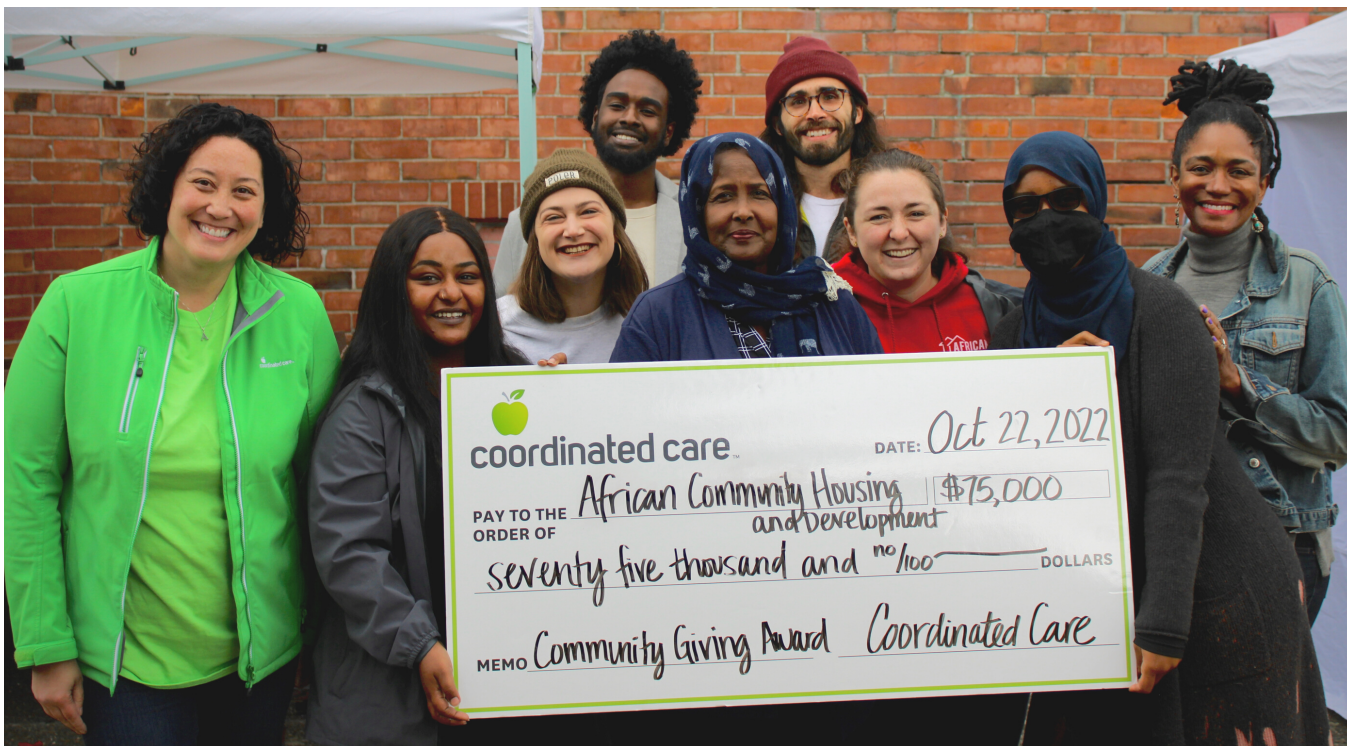 EULER
AFRICAN
coordinated care™
DATE: Oct 22, 2022
PAY TO THE ORDER OF African Community Housing and Development $75,000
seventy five thousand and no/100 DOLLARS
MEMO Community Giving Award Coordinated Care